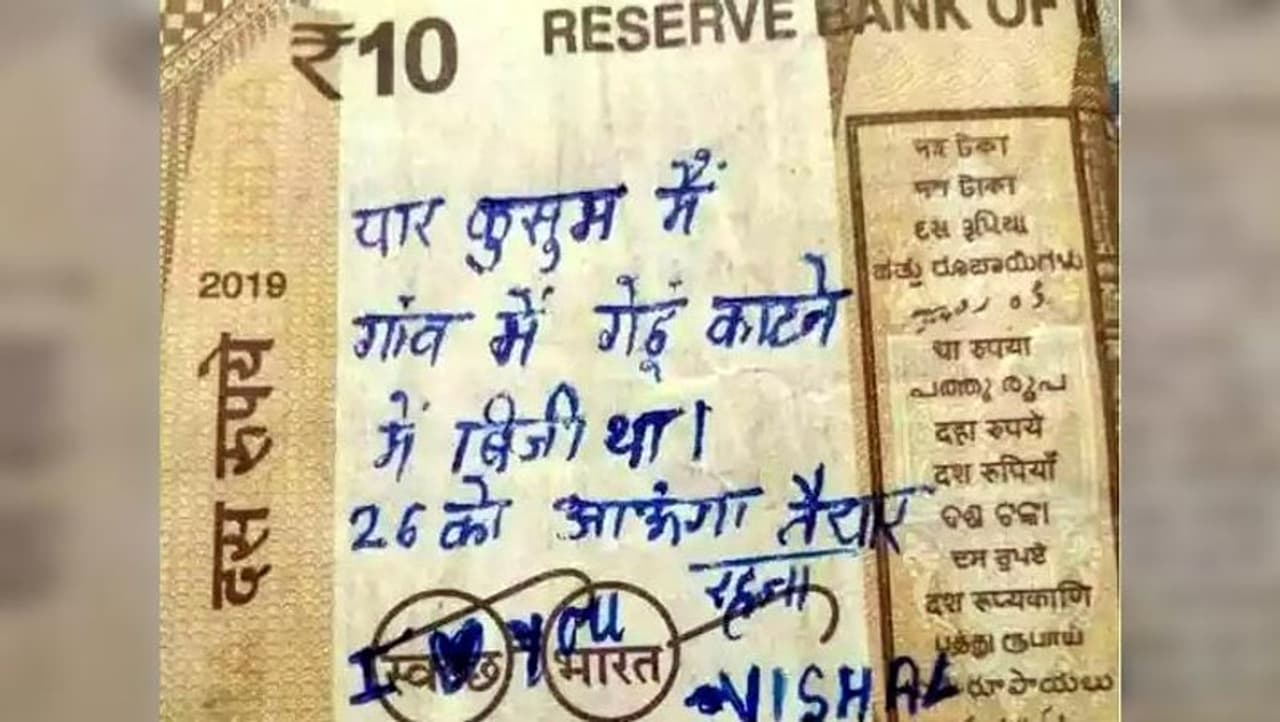 ₹10
RESERVE BANK OF
2019
दस रुपये
यार कुसुम मैं
गांव में गेहूं काटने
में बिजी था।
26 को आऊंगा तैयार
रहना
I ♥ you
स्वच्छ भारत
VISHAL
দহ টকা
দশ টাকা
દસ રૂપિયા
ಹತ್ತು ರೂಪಾಯಿಗಳು
धा रुपया
പത്തു രൂപ
दहा रुपये
दश रुपियाँ
ଦଶ ଟଙ୍କା
ਦਸ ਰੁਪਏ
दश रूप्यकाणि
பத்து ரூபாய்
రూపాయలు